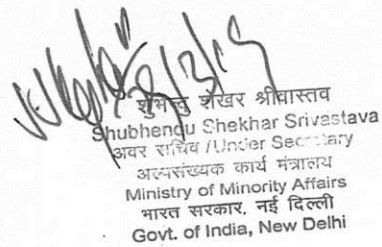 8/3/19
शुभेन्दु शेखर श्रीवास्तव
Shubhendu Shekhar Srivastava
अवर सचिव /Under Secretary
अल्पसंख्यक कार्य मंत्रालय
Ministry of Minority Affairs
भारत सरकार, नई दिल्ली
Govt. of India, New Delhi